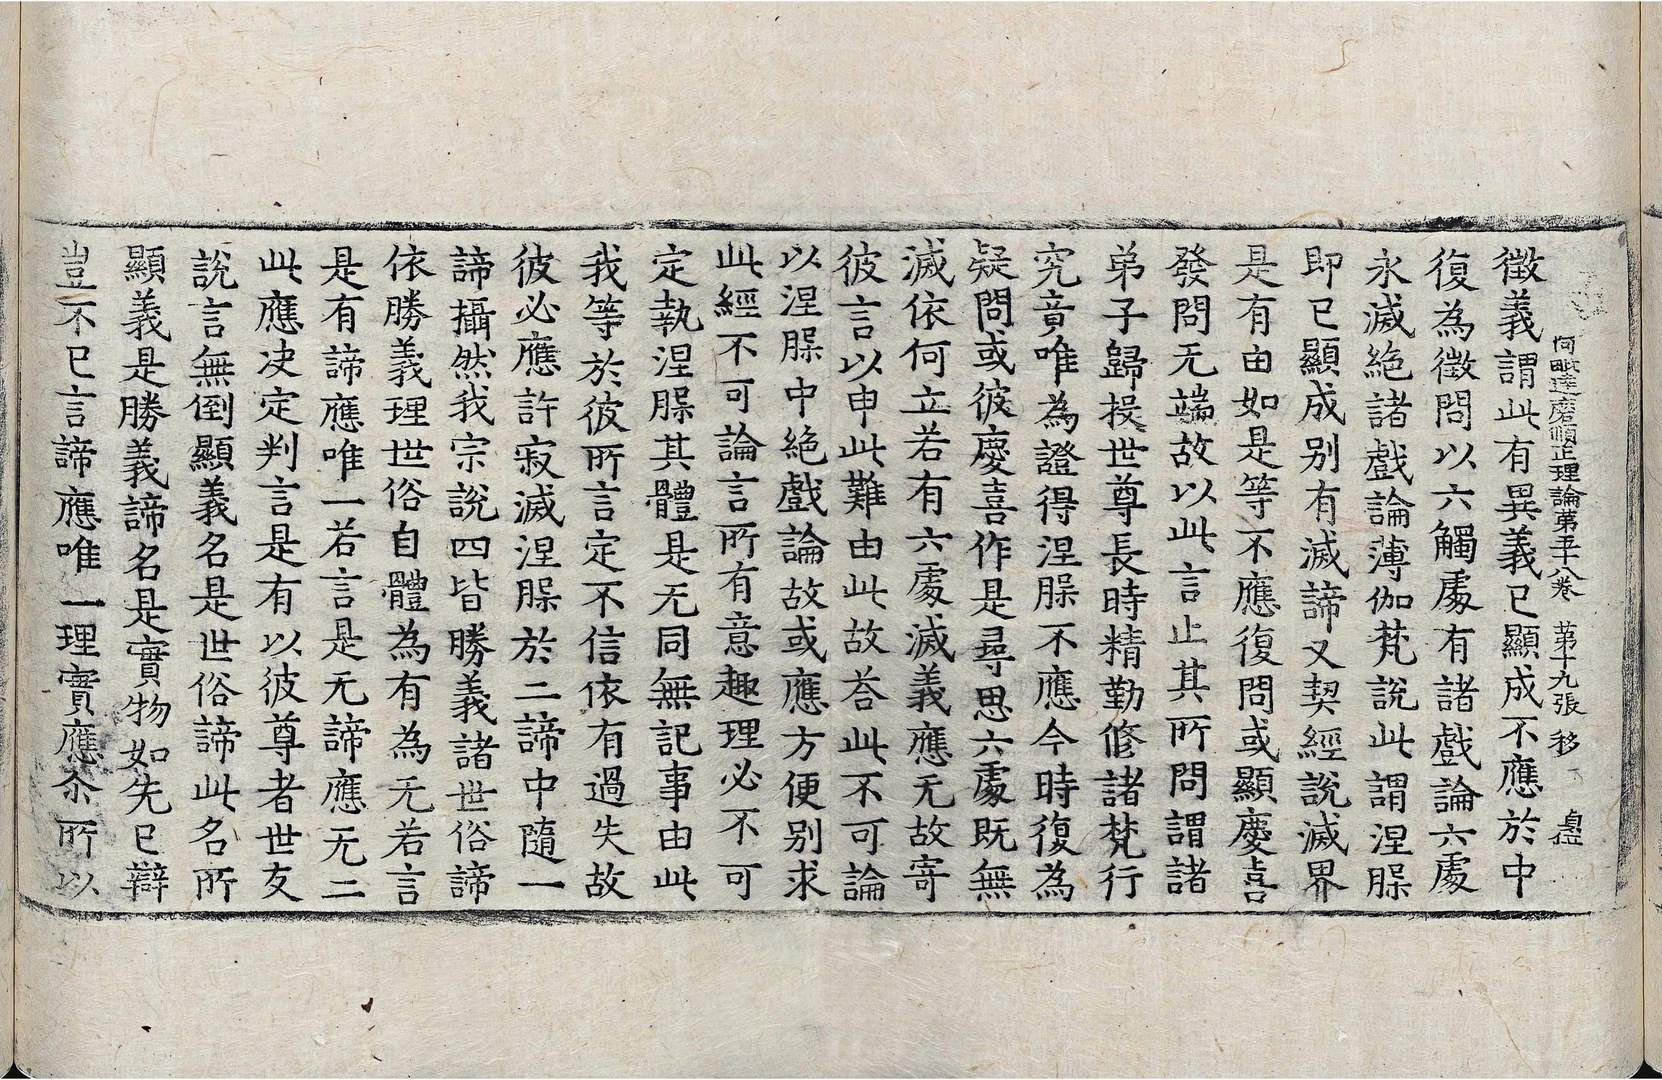 阿毗達磨順正理論第五十八卷　第十九張　移
徵義謂此有異義已顯成不應於中
復為徵問以六觸處有諸戲論六處
永滅絶諸戲論薄伽梵說此謂涅槃
即已顯成别有滅諦又契經說滅界
是有由如是等不應復問或顯慶喜
發問无端故以此言止其所問謂諸
弟子歸投世尊長時精勤修諸梵行
究竟唯為證得涅槃不應今時復為
疑問或彼慶喜作是尋思六處既無
滅依何立若有六處滅義應无故寄
彼言以申此難由此故荅此不可論
以涅槃中絶戲論故或應方便别求
此經不可論言所有意趣理必不可
定執涅槃其體是无同無記事由此
我等於彼所言定不信依有過失故
彼必應許寂滅涅槃於二諦中隨一
諦攝然我宗說四皆勝義諸世俗諦
依勝義理世俗自體為有為无若言
是有諦應唯一若言是无諦應无二
此應决定判言是有以彼尊者世友
說言無倒顯義名是世俗諦此名所
顯義是勝義諦名是實物如先已辯
豈不已言諦應唯一理實應尒所以